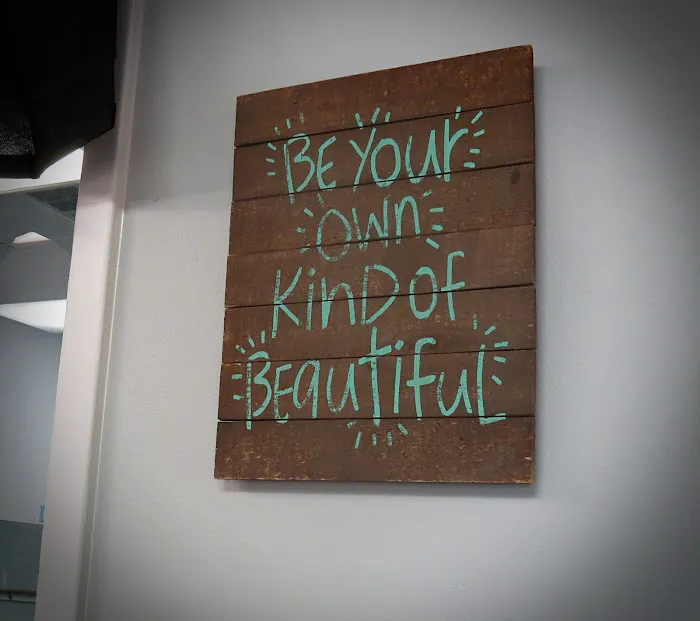 Be Your
Own
Kind of
Beautiful